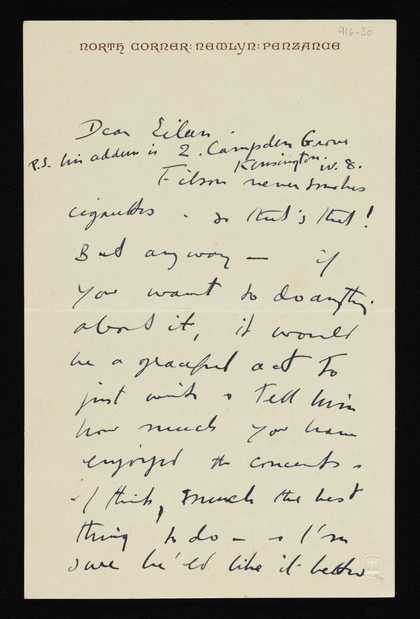 916-30
NORTH CORNER: NEWLYN: PENZANCE
Dear Eileen.
P.S. his address is 2. Campden Grove
Kensington. W. 8.
Filson never smokes
cigarettes. so that's that!
But anyway — if
you want to do anything
about it, it would
be a graceful act to
just write & tell him
how much you have
enjoyed the concerts &
I think, much the best
thing to do — & I'm
sure he'ld like it better